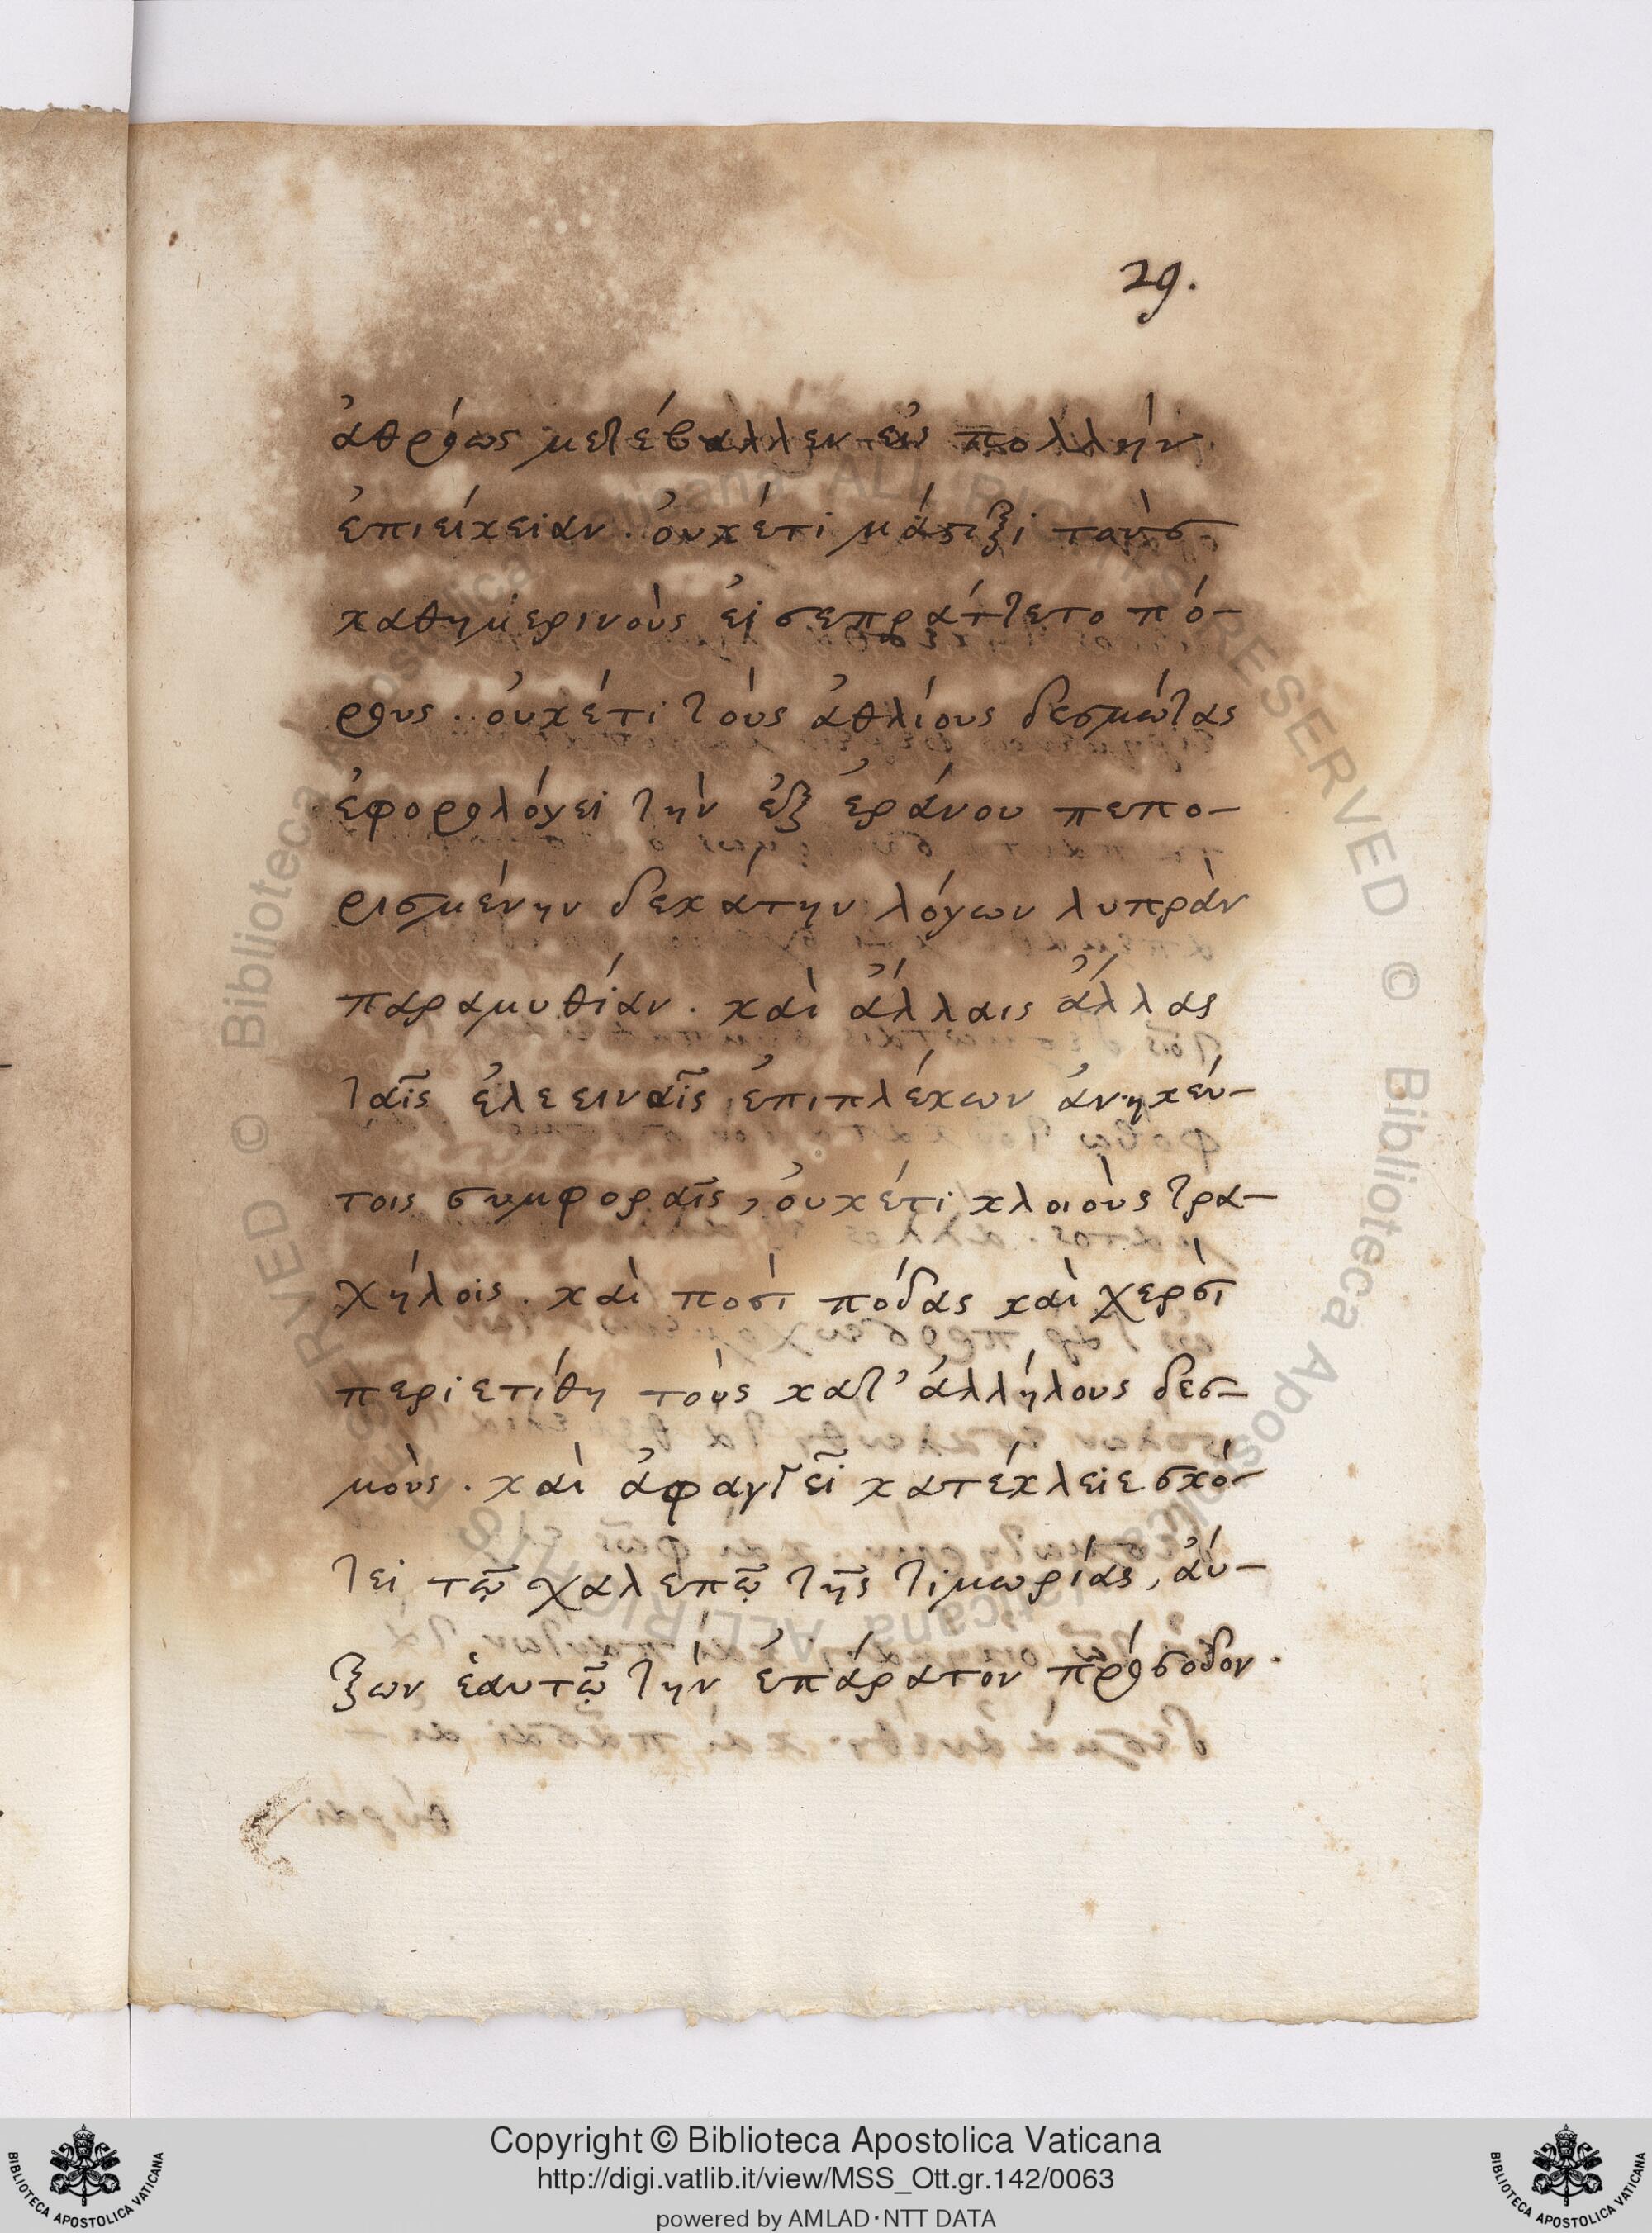 29.
ἀθρόως μετέβαλλεν εἰς πολλὴν
ἐπιείκειαν. ὀυκέτι μάστιξι τοὺσ
καθημερινοὺς εἰσεπράττετο πό-
ρους. ὀυκέτι τοὺς ἀθλίους δεσμώτας
ἐφορολόγει τὴν ἐξ ἐράνου πεπο-
ρισμένην δεκάτην λόγων λυπρὰν
παραμυθίαν. καὶ ἄλλαις ἄλλας
ταῖς ἐλεειναῖς ἐπιπλέκων ἀνηκέυ-
τοις συμφοραῖς, ὀυκέτι κλοιοὺς τρα-
χήλοις. καὶ ποσὶ πόδας καὶ χερσὶ
περιετίθη τοὺς κατ' ἀλλήλους δεσ-
μοὺς. καὶ ἀφαγγεῖ κατέκλειε σκό-
τει τῶ χαλεπῶ τῆς τιμωρίας, ἀύ-
ξων ἑαυτῶ τὴν ἐπάρατον πρόσοδον.
Copyright © Biblioteca Apostolica Vaticana
http://digi.vatlib.it/view/MSS_Ott.gr.142/0063
powered by AMLAD·NTT DATA
BIBLIOTECA APOSTOLICA VATICANA
BIBLIOTECA APOSTOLICA VATICANA